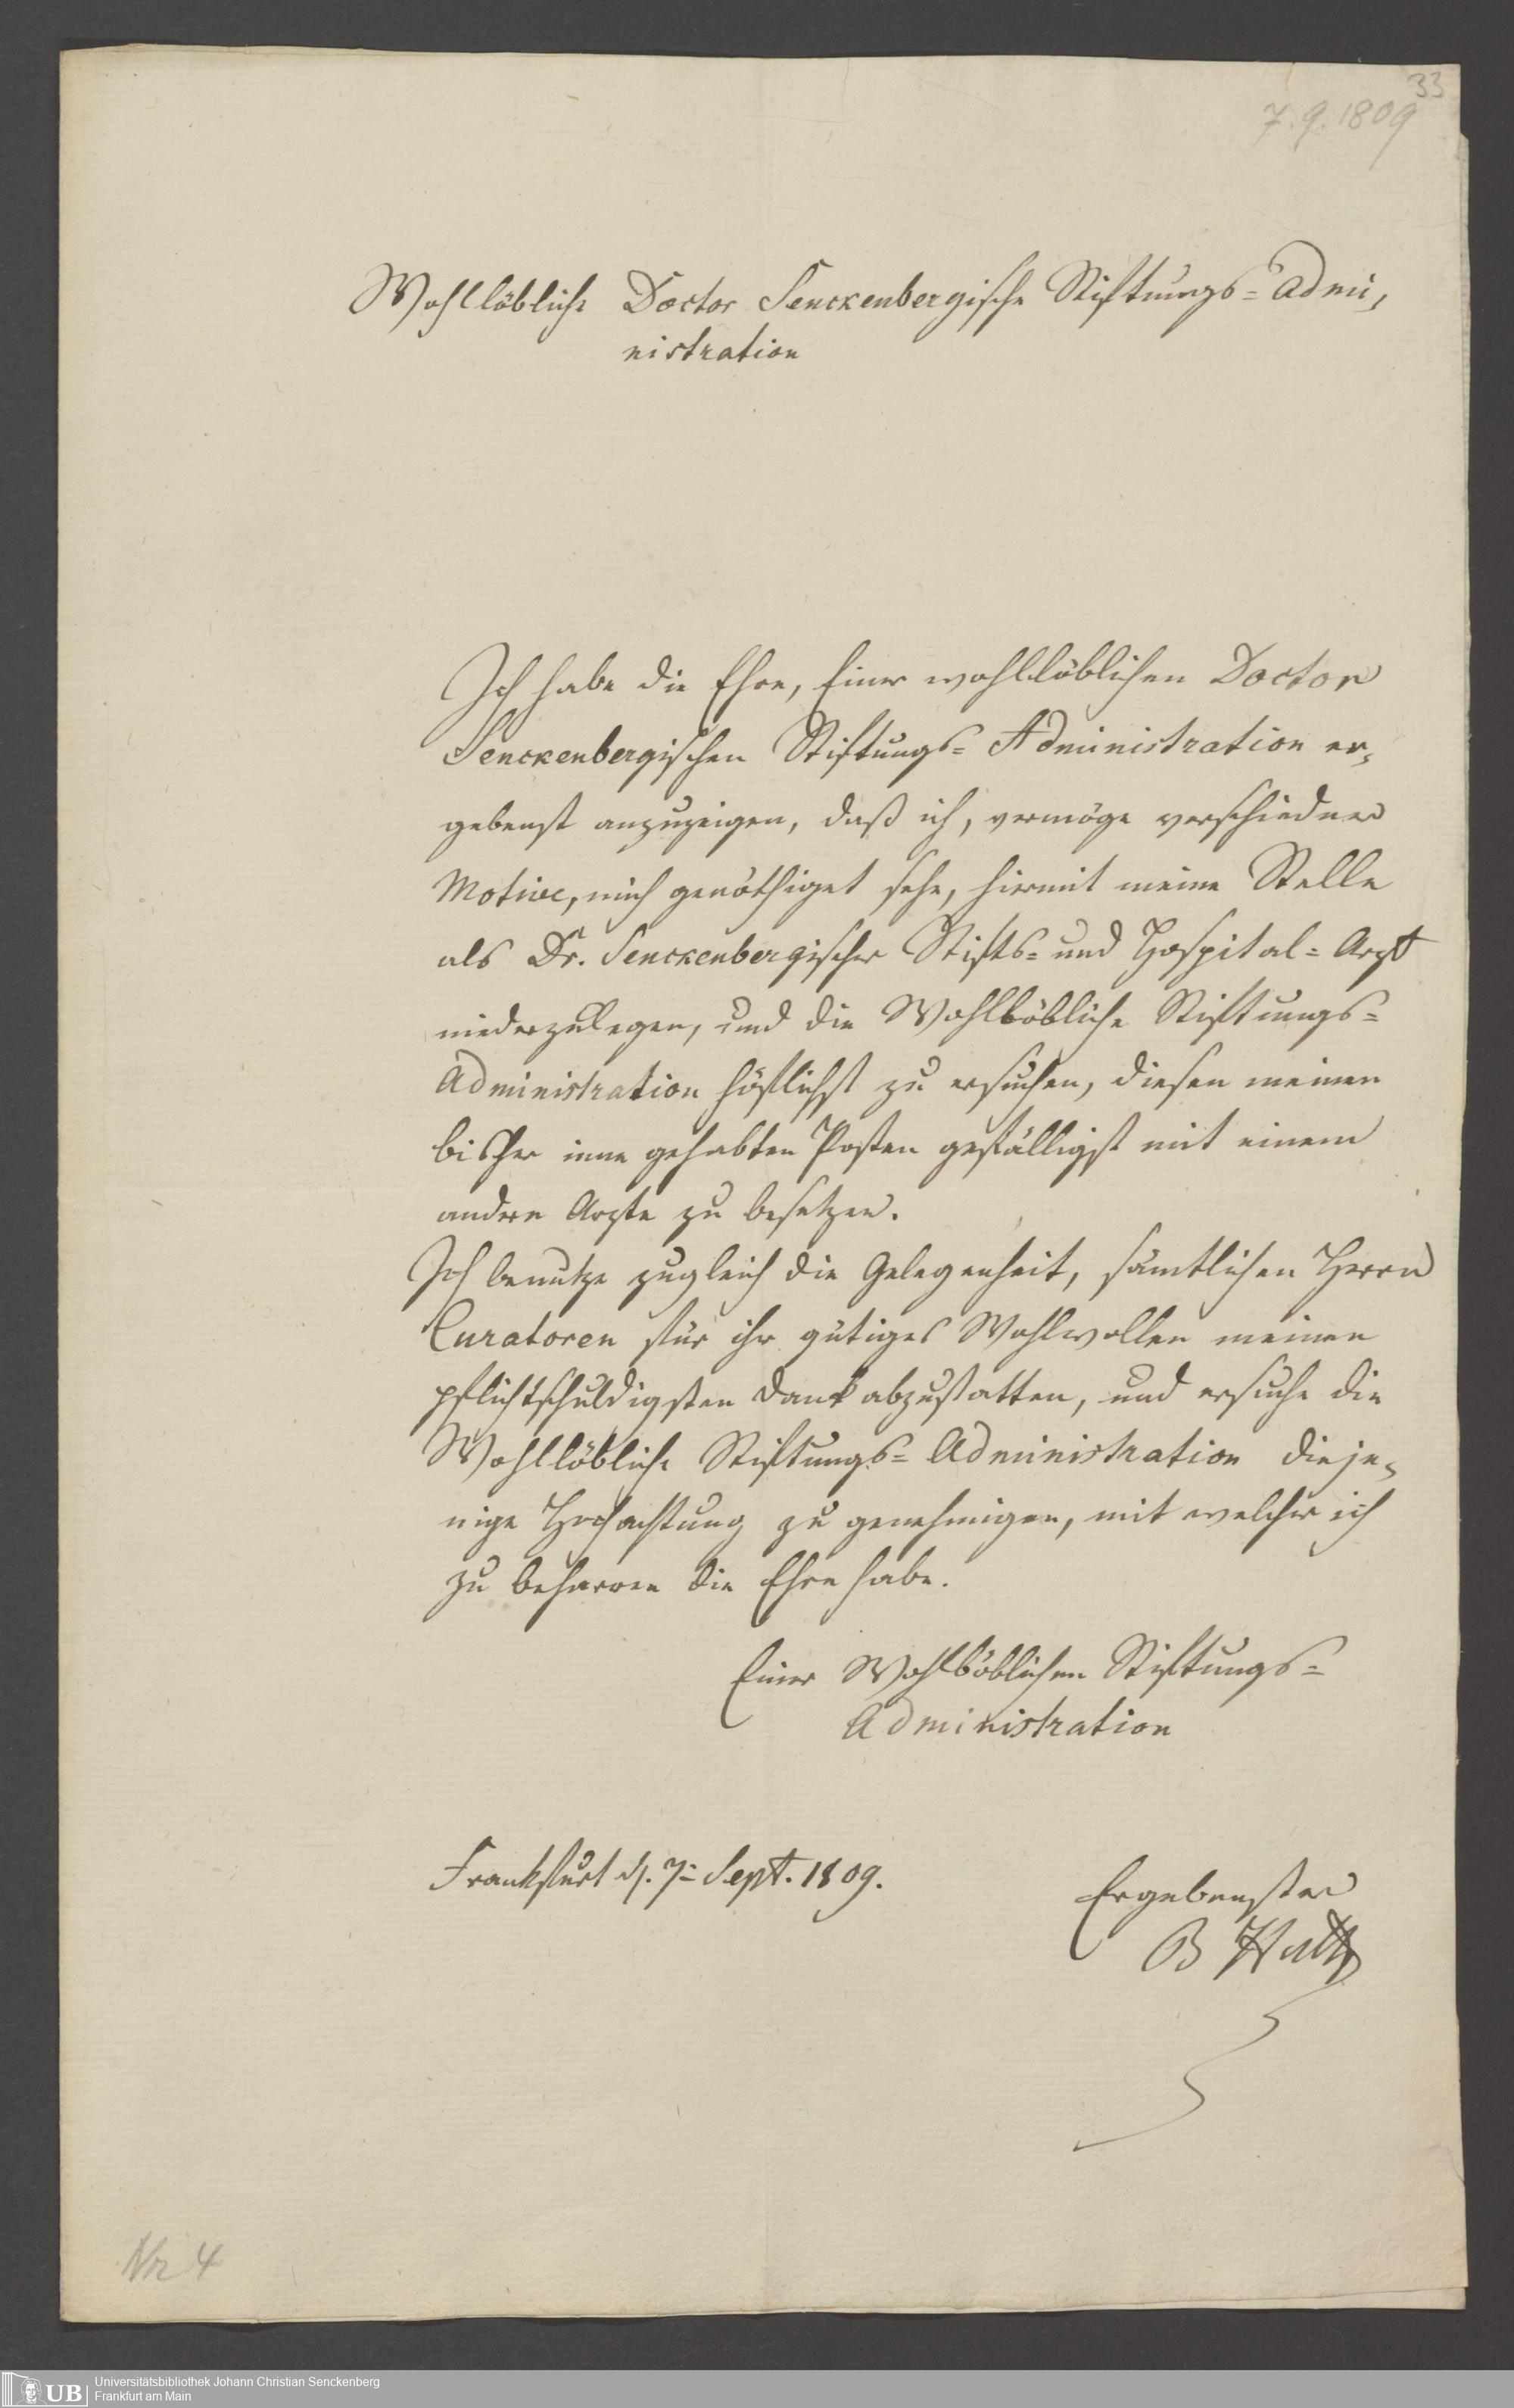 33
7.9.1809
Wohllöbliche Doctor Senckenbergische Stiftungs=Admi,
nistration
Ich habe die Ehre, Einer wohllöblichen Doctor
Senckenbergischen Stiftungs=Administration er,
gebenst anzuzeigen, daß ich, vermöge verschiedner
Motive, mich genöthiget sehe, hiermit meine Stelle
als Dr. Senckenbergischer Stifts= und Hospital=Arzt
niederzulegen, und die Wohllöbliche Stiftungs=
Administration höflichst zu ersuchen, diesen meinen
bisher inne gehabten Posten gefälligst mit einem
andern Arzte zu besetzen.
Ich benutze zugleich die Gelegenheit, sämtlichen Herrn
Curatoren für ihr gütiges Wohlwollen meinen
pflichtschuldigsten Dank abzustatten, und ersuche die
Wohllöbliche Stiftungs=Administration dieje,
nige Hochachtung zu genehmigen, mit welcher ich
zu beharren die Ehre habe.
Einer Wohllöblichen Stiftungs=
Administration
Frankfurt d. 7= Sept. 1809.
Ergebenster
B
Nr 4
UB
Universitätsbibliothek Johann Christian Senckenberg
Frankfurt am Main